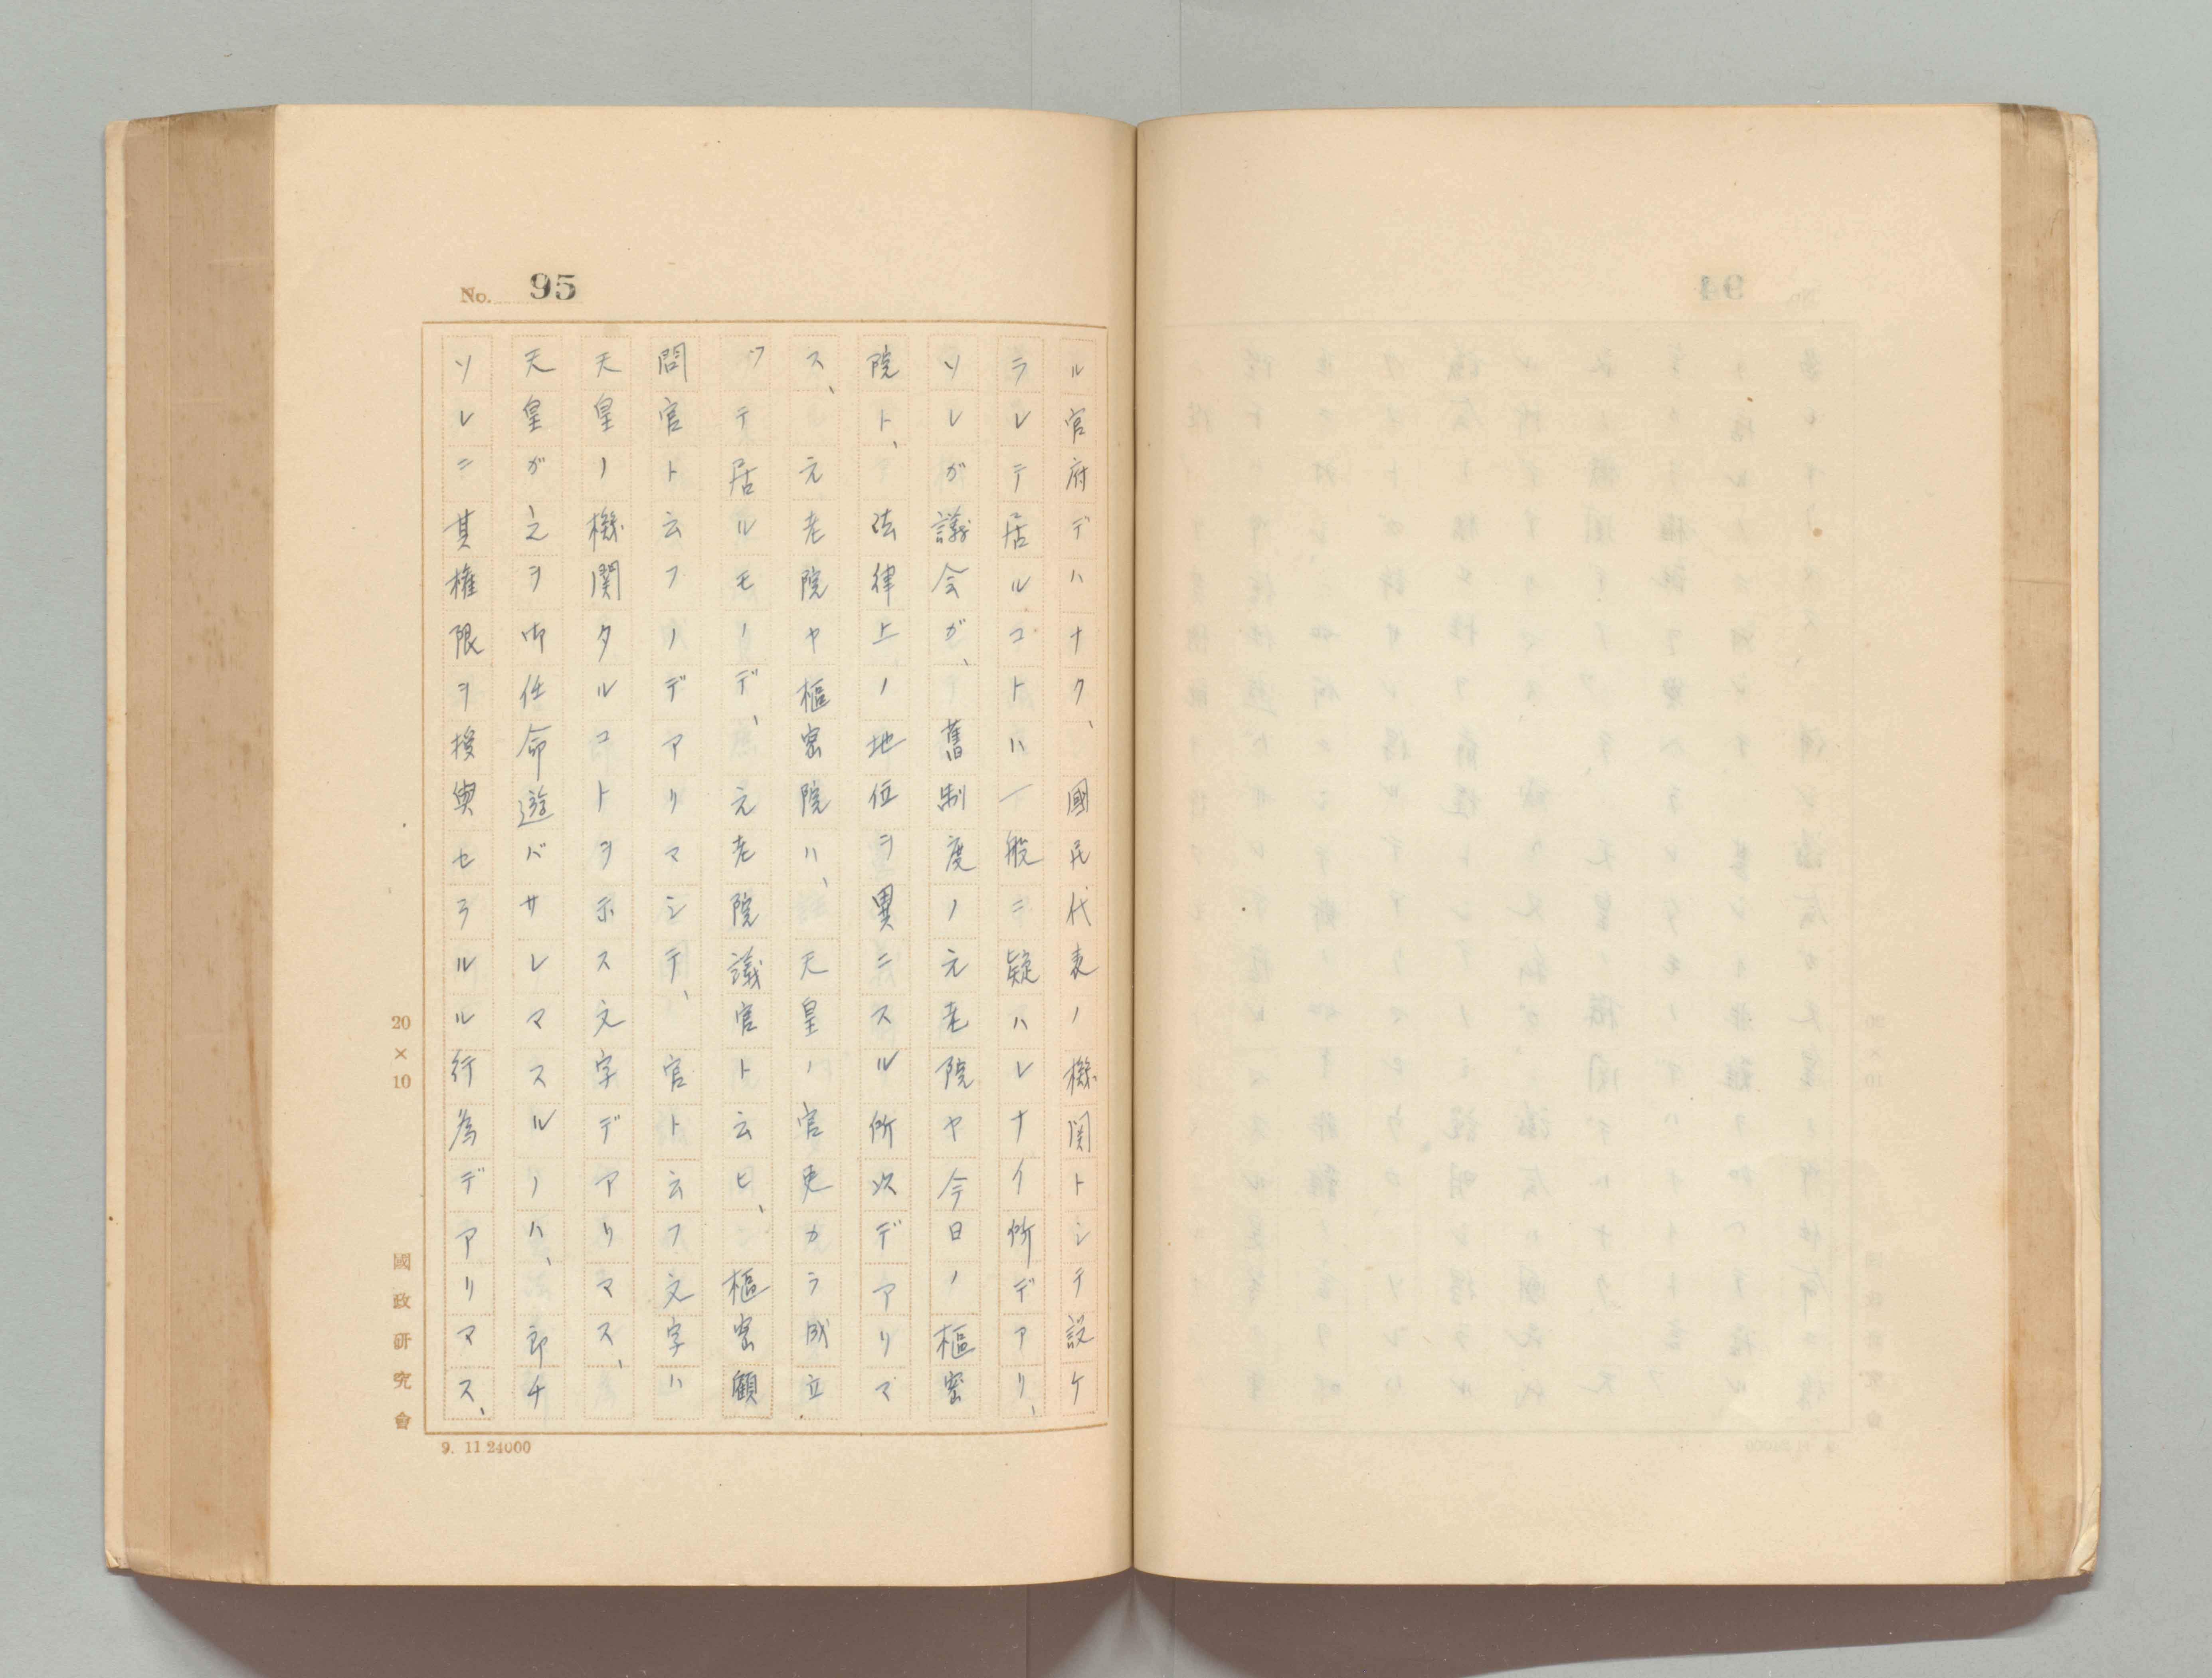 No. 95
ル官府デハナク、國民代表ノ機関トシテ設ケ
ラレテ居ルコトハ一般ニ疑ハレナイ所デアリ、
ソレガ議会ガ、舊制度ノ元老院ヤ今日ノ樞密
院ト、法律上ノ地位ヲ異ニスル所以デアリマ
ス、元老院ヤ樞密院ハ、天皇ノ官吏カラ成立
ツテ居ルモノデ、元老院議官ト云ヒ、樞密顧
問官ト云フノデアリマシテ、官ト云フ文字ハ
天皇ノ機関タルコトヲ示ス文字デアリマス、
天皇ガ之ヲ御任命遊バサレマスルノハ、即チ
ソレニ其権限ヲ授與セラルル行為デアリマス、
20×10
國政研究會
9. 11 24000